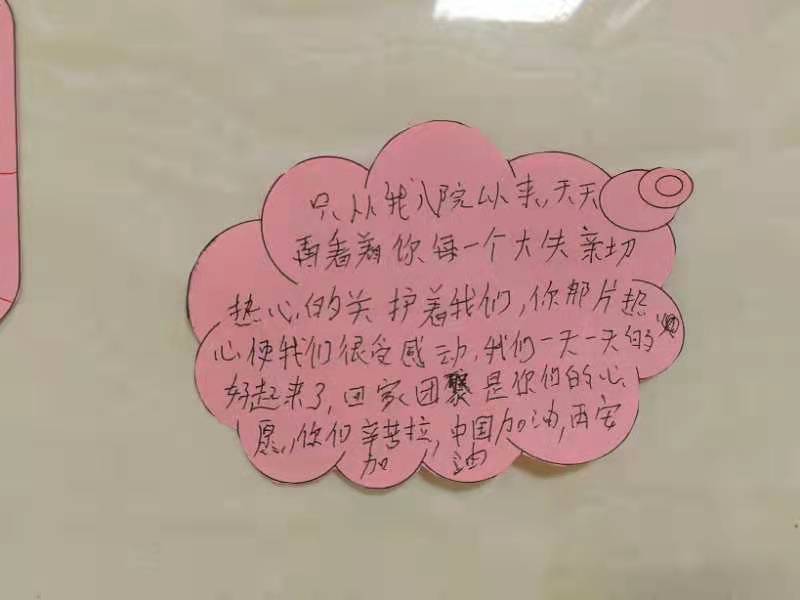 只从我入院以来,天天
再看着你每一个大失亲切
热心的关护着我们,你那片热
心使我们很受感动,我们一天一天的
好起来了,回家团聚是你们的心
愿,你们辛苦拉,中国加油,西安
加油